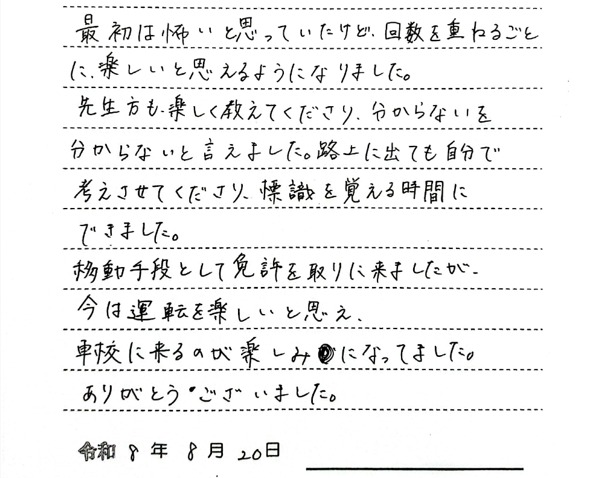 最初は怖いと思っていたけど、回数を重ねるごと
に、楽しいと思えるようになりました。
先生方も、楽しく教えてくださり、分からないを
分からないと言えました。路上に出ても自分で
考えさせてくださり、標識を覚える時間に
できました。
移動手段として免許を取りに来ましたが、
今は運転を楽しいと思え、
車校に来るのが楽しみになってました。
ありがとうございました。
令和 8 年 8 月 20日